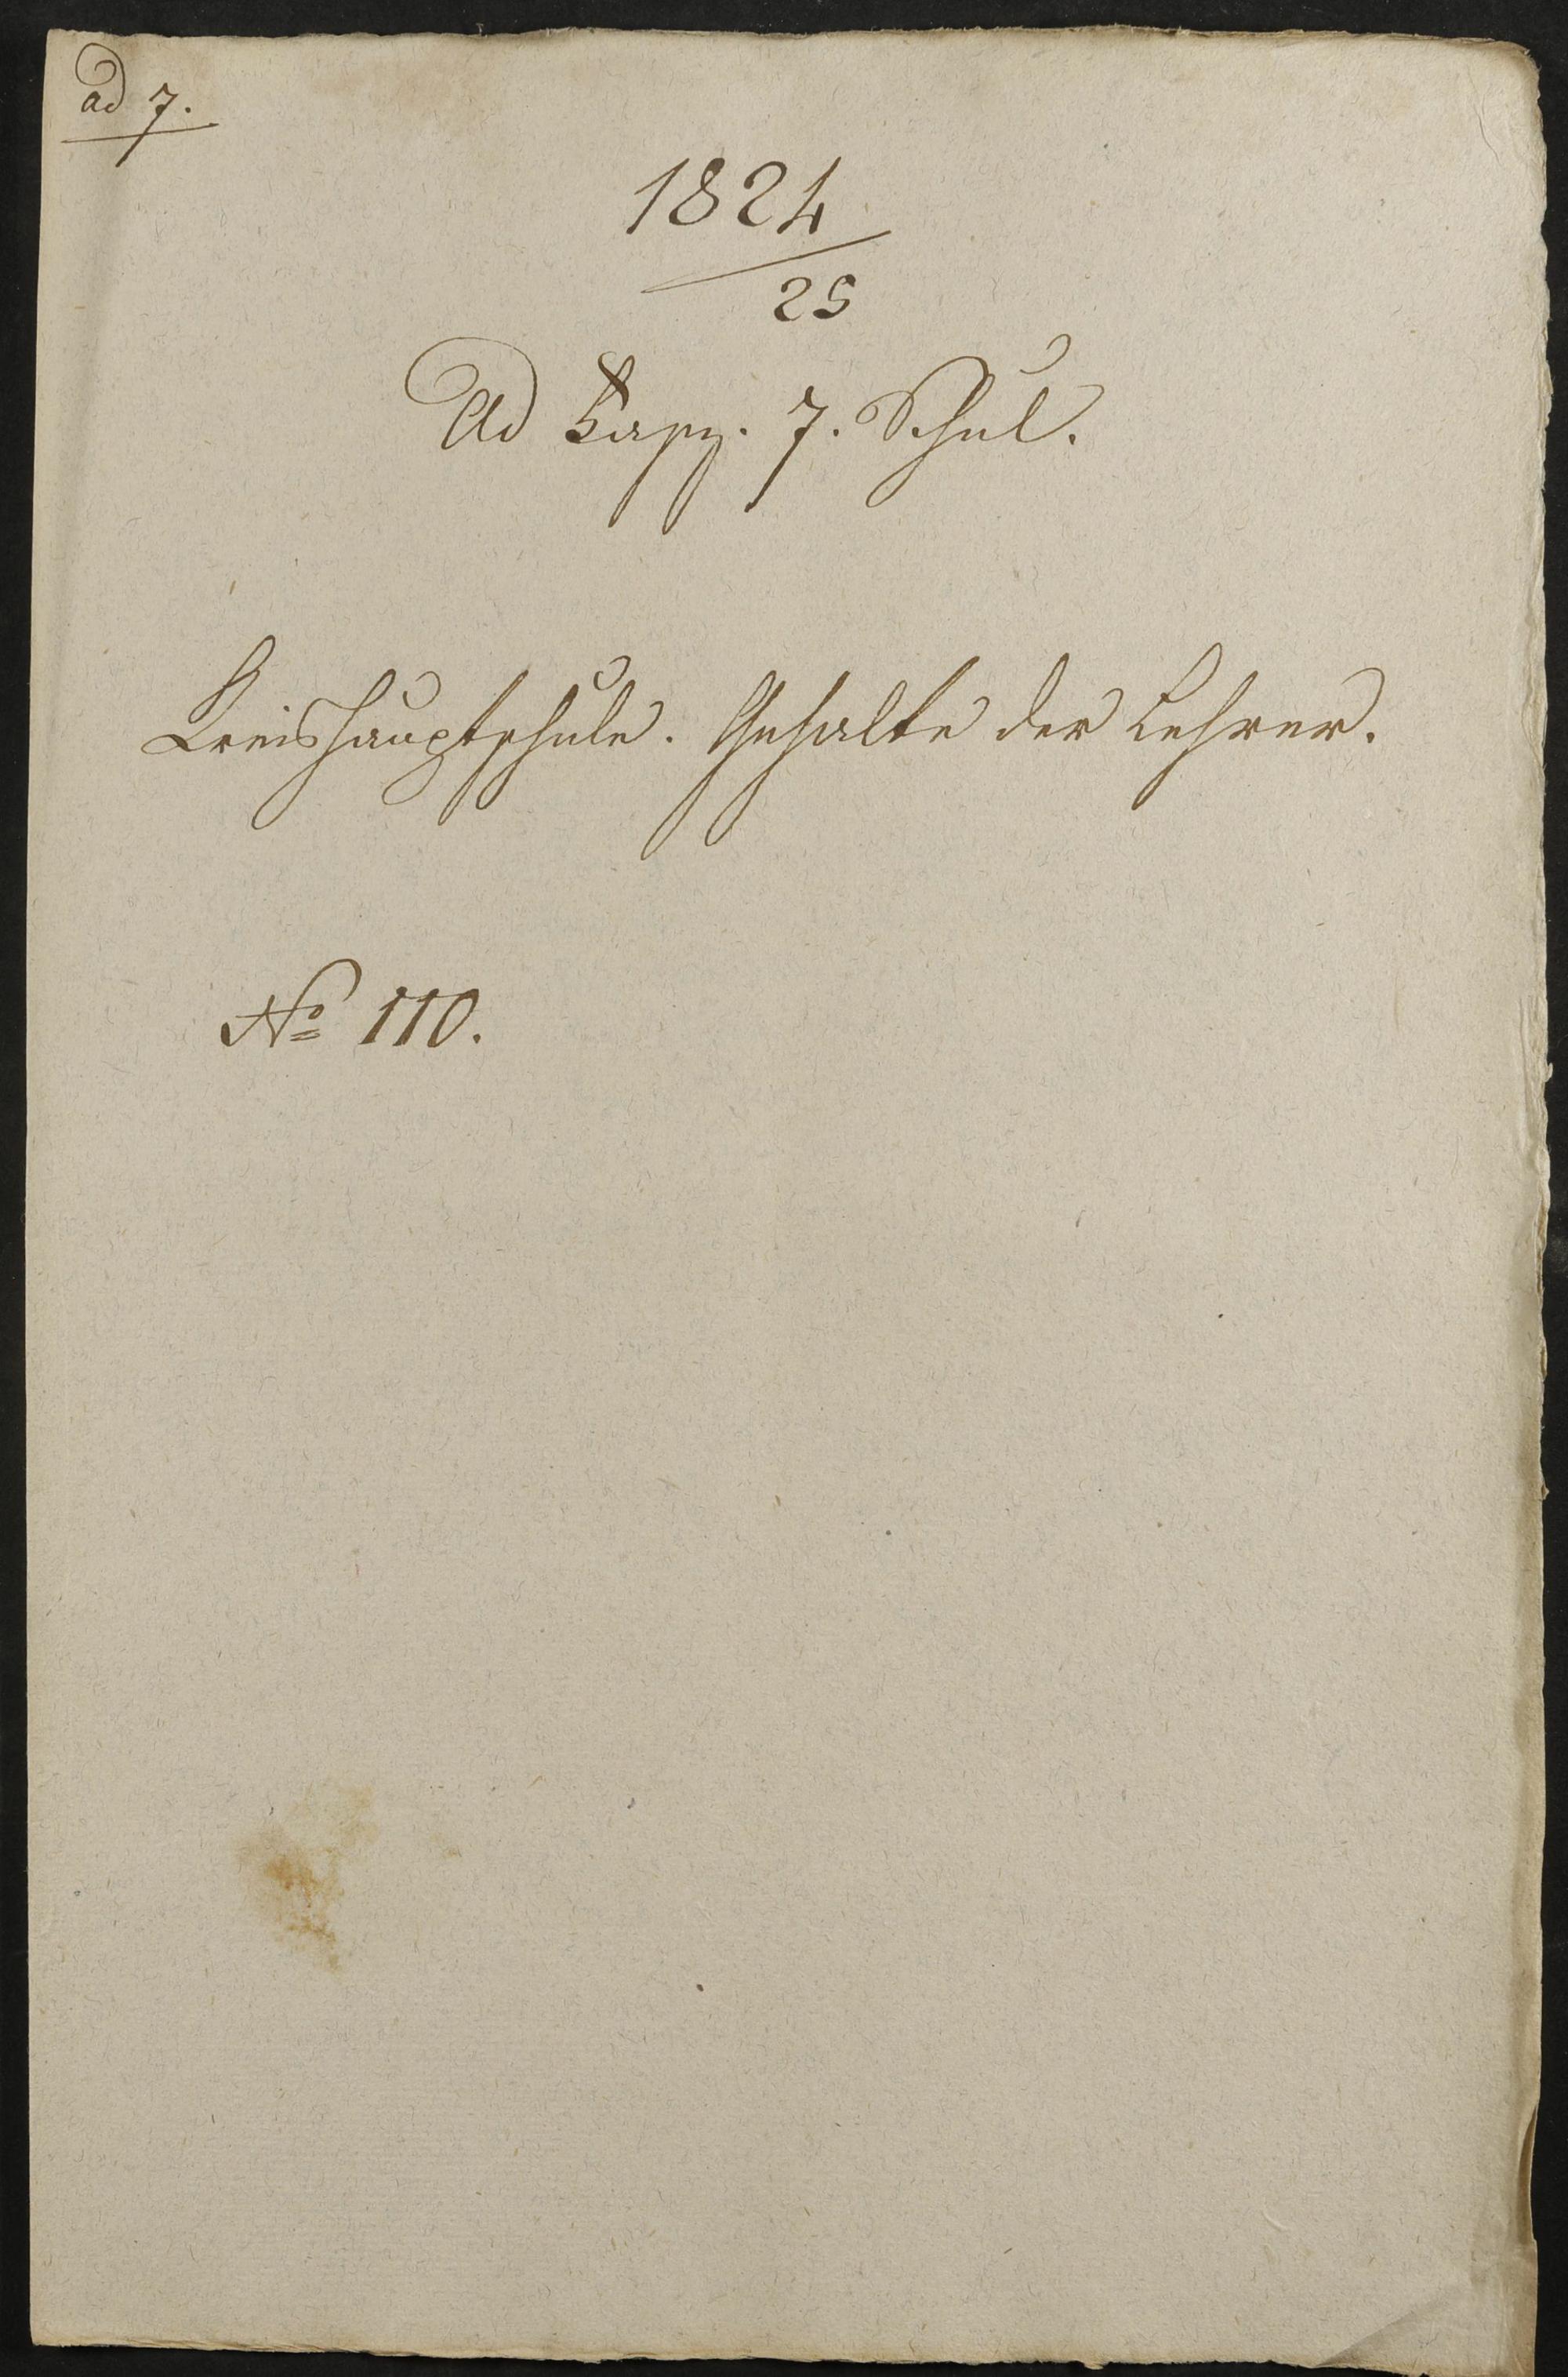 ad 7.
1824
25
Ad Fasz. 7. Schul.
Kreishauptschule. Gehalte der Lehrer.
No 110.